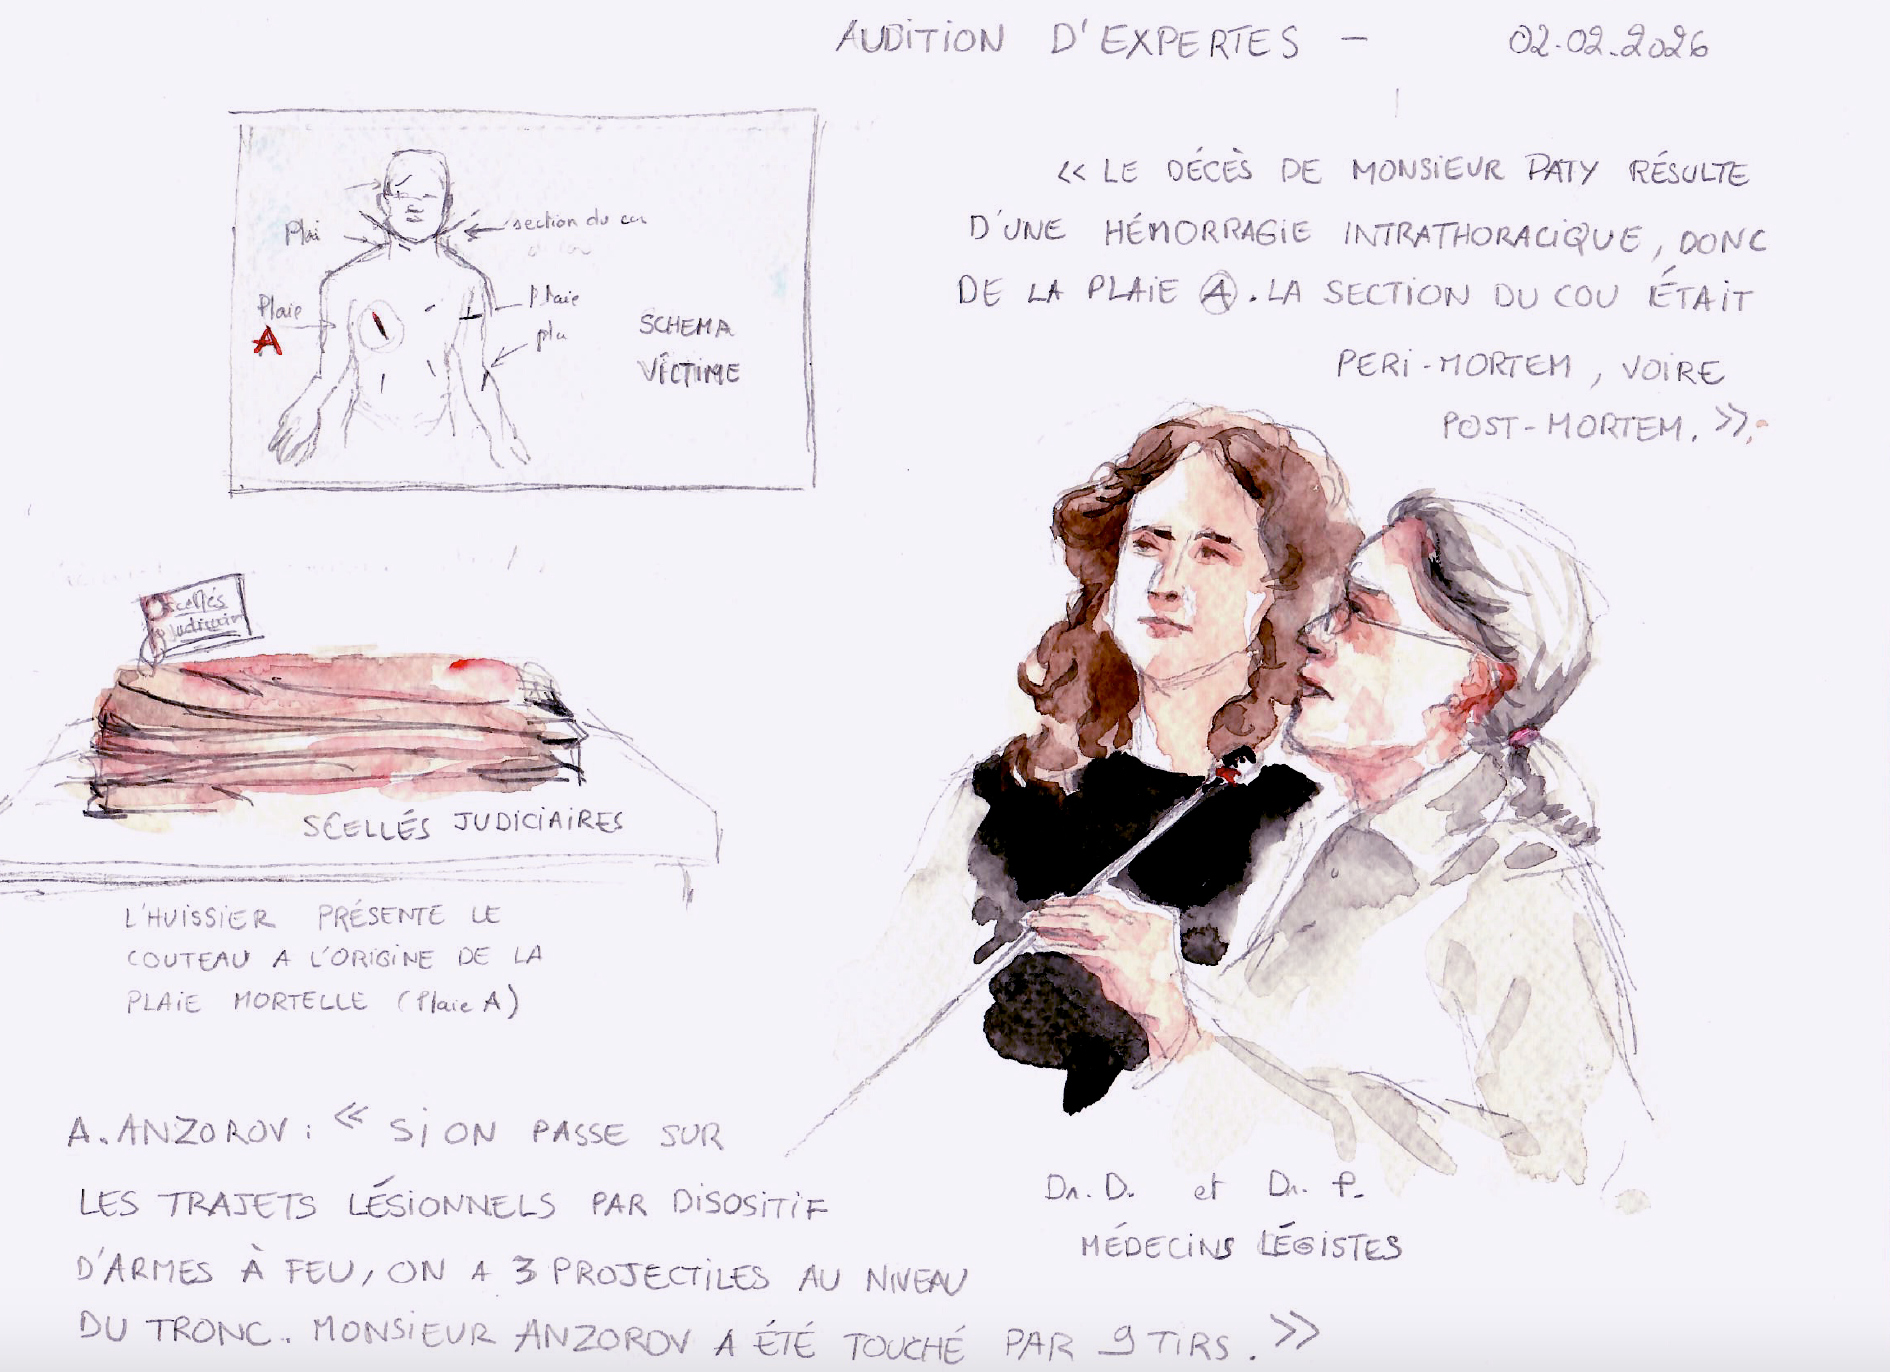 AUDITION D'EXPERTES — 02.02.2026
« LE DÉCÈS DE MONSIEUR PATY RÉSULTE
D'UNE HÉMORRAGIE INTRATHORACIQUE, DONC
DE LA PLAIE A. LA SECTION DU COU ÉTAIT
PERI-MORTEM, VOIRE
POST-MORTEM. ».
section du
Plaie
A
Plaie
SCHEMA
VICTIME
Scellés
judiciair
SCELLÉS JUDICIAIRES
L'HUISSIER PRÉSENTE LE
COUTEAU A L'ORIGINE DE LA
PLAIE MORTELLE (Plaie A)
Dr. D. et Dr. P.
MÉDECINS LÉGISTES
A. ANZOROV : « SI ON PASSE SUR
LES TRAJETS LÉSIONNELS PAR DISOSITIF
D'ARMES À FEU, ON A 3 PROJECTILES AU NIVEAU
DU TRONC. MONSIEUR ANZOROV A ÉTÉ TOUCHÉ PAR 9 TIRS. »